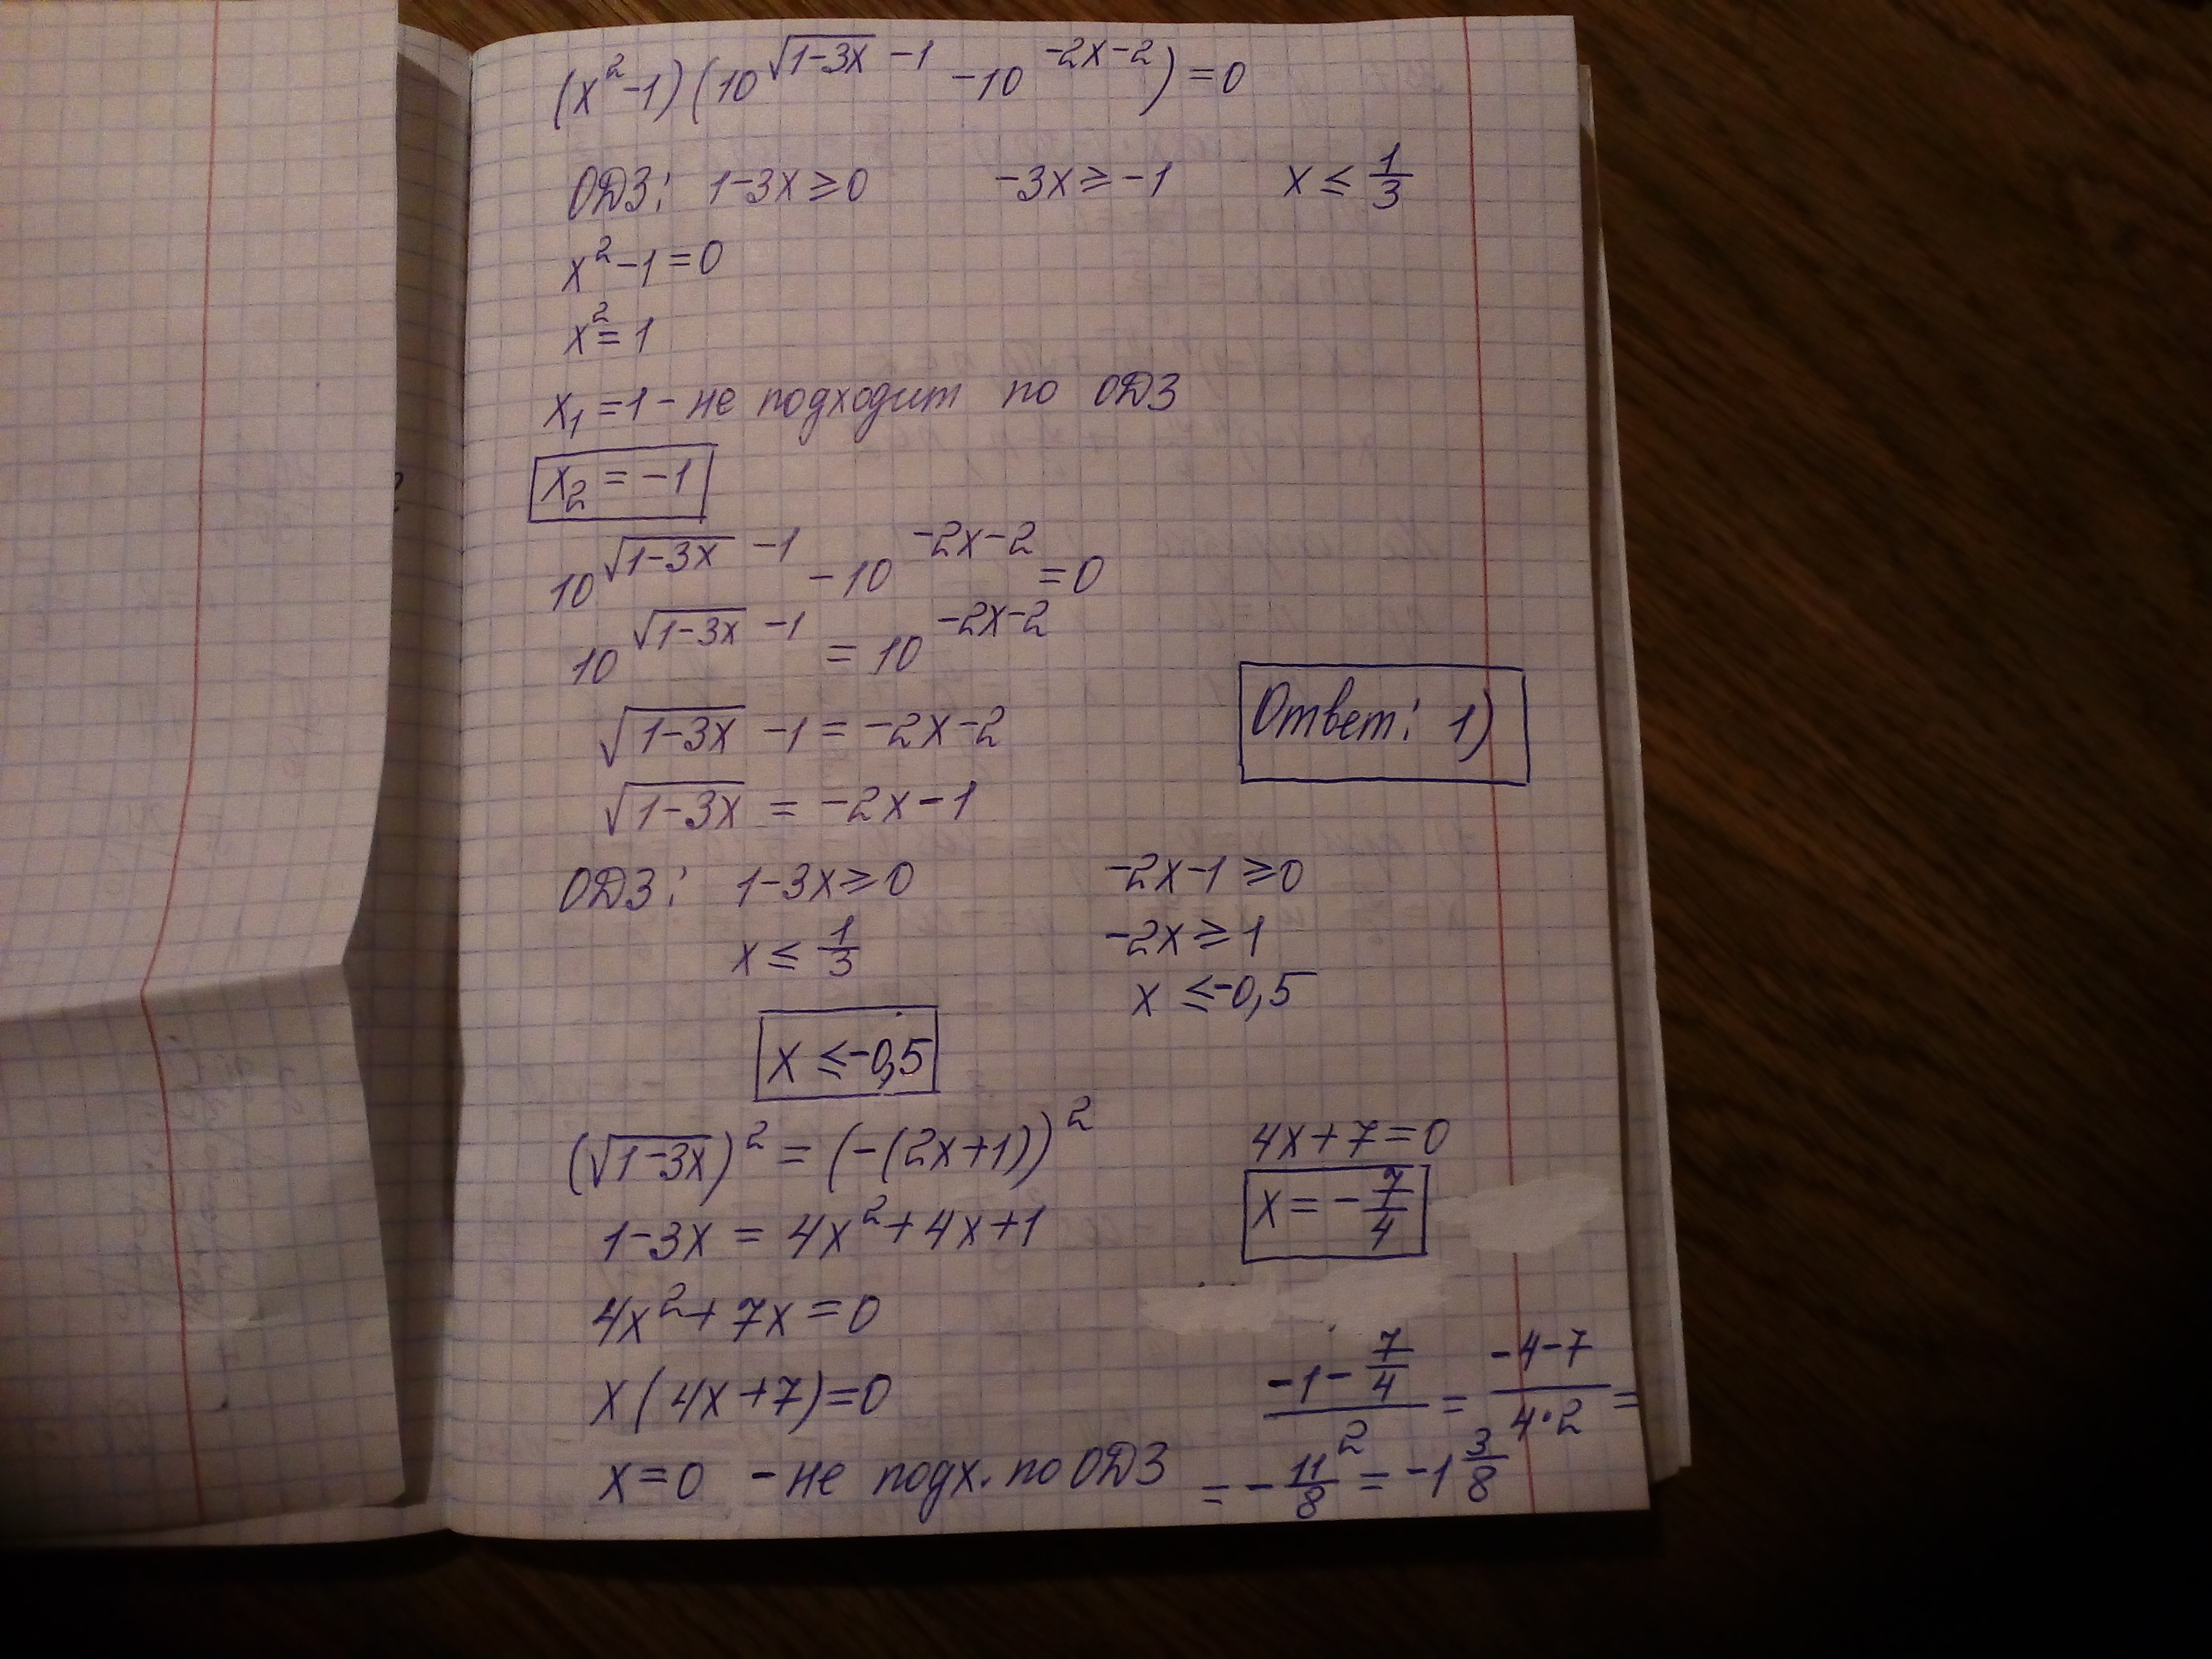 (x²-1)(10^(√(1-3x) -1) -10^(-2x-2)) = 0
ОДЗ: 1-3x ≥ 0 -3x ≥ -1 x ≤ 1/3
x²-1=0
x²=1
x₁ = 1 - не подходит по ОДЗ
x₂ = -1
10^(√(1-3x) -1) - 10^(-2x-2) = 0
10^(√(1-3x) -1) = 10^(-2x-2)
√(1-3x) -1 = -2x-2
Ответ: 1)
√(1-3x) = -2x-1
ОДЗ: 1-3x ≥ 0 -2x-1 ≥ 0
x ≤ 1/3 -2x ≥ 1
x ≤ -0,5
x ≤ -0,5
(√(1-3x))² = (-(2x+1))²
1-3x = 4x²+4x+1
4x²+7x=0
x(4x+7)=0
x=0 - не подх. по ОДЗ
4x+7=0
x = -7/4
(-1-7/4)/2 = (-4-7)/(4·2) =
= -11/8 = -1 3/8